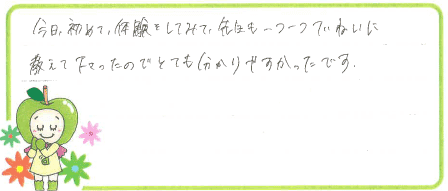 今日、初めて、体験をしてみて、先生も一つ一つていねいに
教えて下さったのでとても分かりやすかったです.